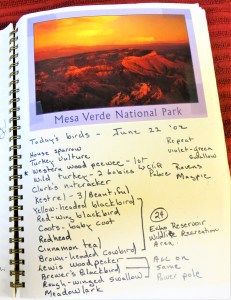 Mesa Verde National Park
Today's birds - June 22 '02
House sparrow
Turkey Vulture
* Western wood peewee - 1st
Wild turkey - 2 babies
Clark's nutcracker
Kestrel - 3/Beautiful
Yellow-headed blackbird
Red-wing blackbird
Coots - baby coot
Redhead
Cinnamon teal
Brown-headed Cowbird
Lewis Woodpecker
Brewer's Blackbird
Rough-winged swallow
Meadowlark
Repeat
violet-green
swallow
Ravens
Magpie
24
Echo Reservoir
Wildlife Recreation
Area.
All on
same
Power pole